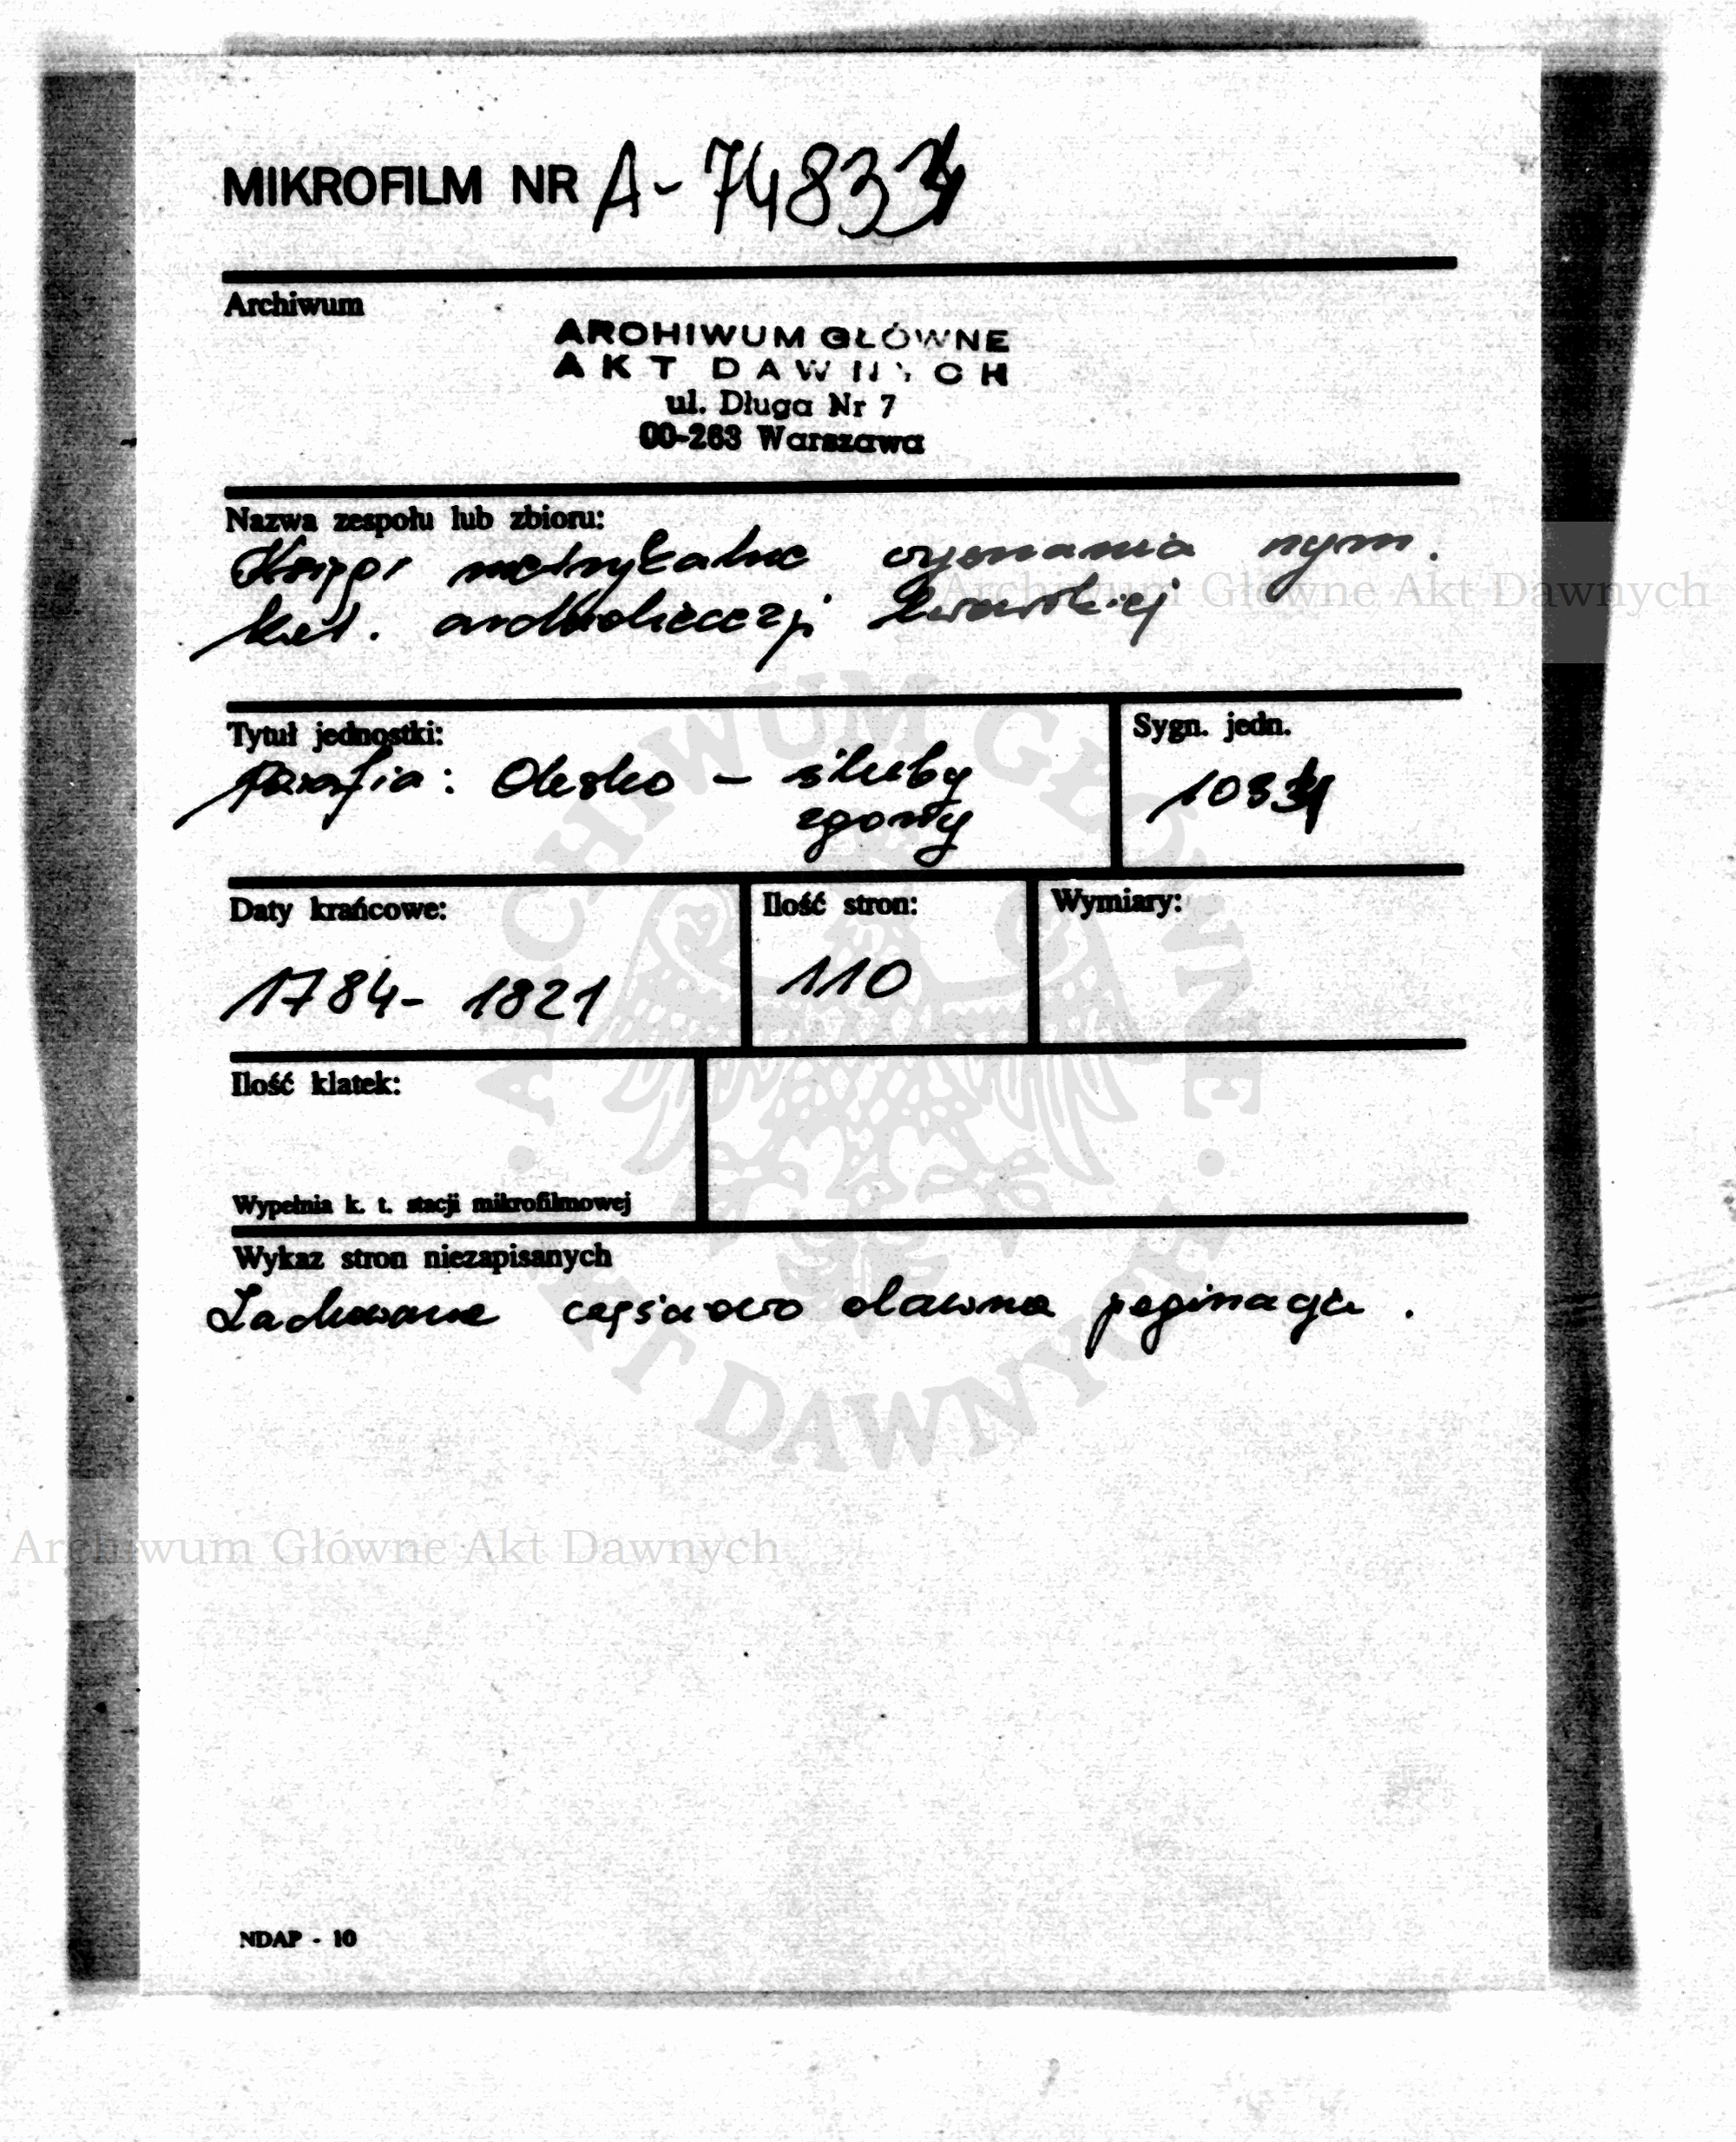 MIKROFILM NR A-74834
Archiwum
ARCHIWUM GŁÓWNE
AKT DAWNYCH
ul. Długa Nr 7
00-263 Warszawa
Nazwa zespołu lub zbioru:
Księgi metrykalne wyznania rzym.
kat. archidiecezji lwowskiej
Archiwum Główne Akt Dawnych
Tytuł jednostki:
Parafia: Olesko - śluby
zgony
Sygn. jedn.
Daty krańcowe:
1784- 1821
Ilość stron:
110
Wymiary:
Ilość klatek:
Wypełnia k. t. stacji mikrofilmowej
Wykaz stron niezapisanych
Zachowana częściowo dawna paginacja.
ARCHIWUM GŁÓWNE AKT DAWNYCH
Archiwum Główne Akt Dawnych
NDAP - 10